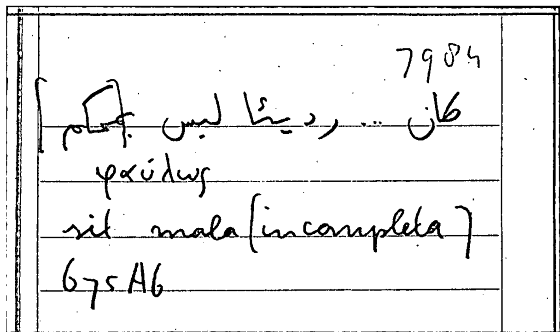 7984
كان ... رديئا ليس [بمحكم]
φαύλως
sit mala (incompleta)
675A6